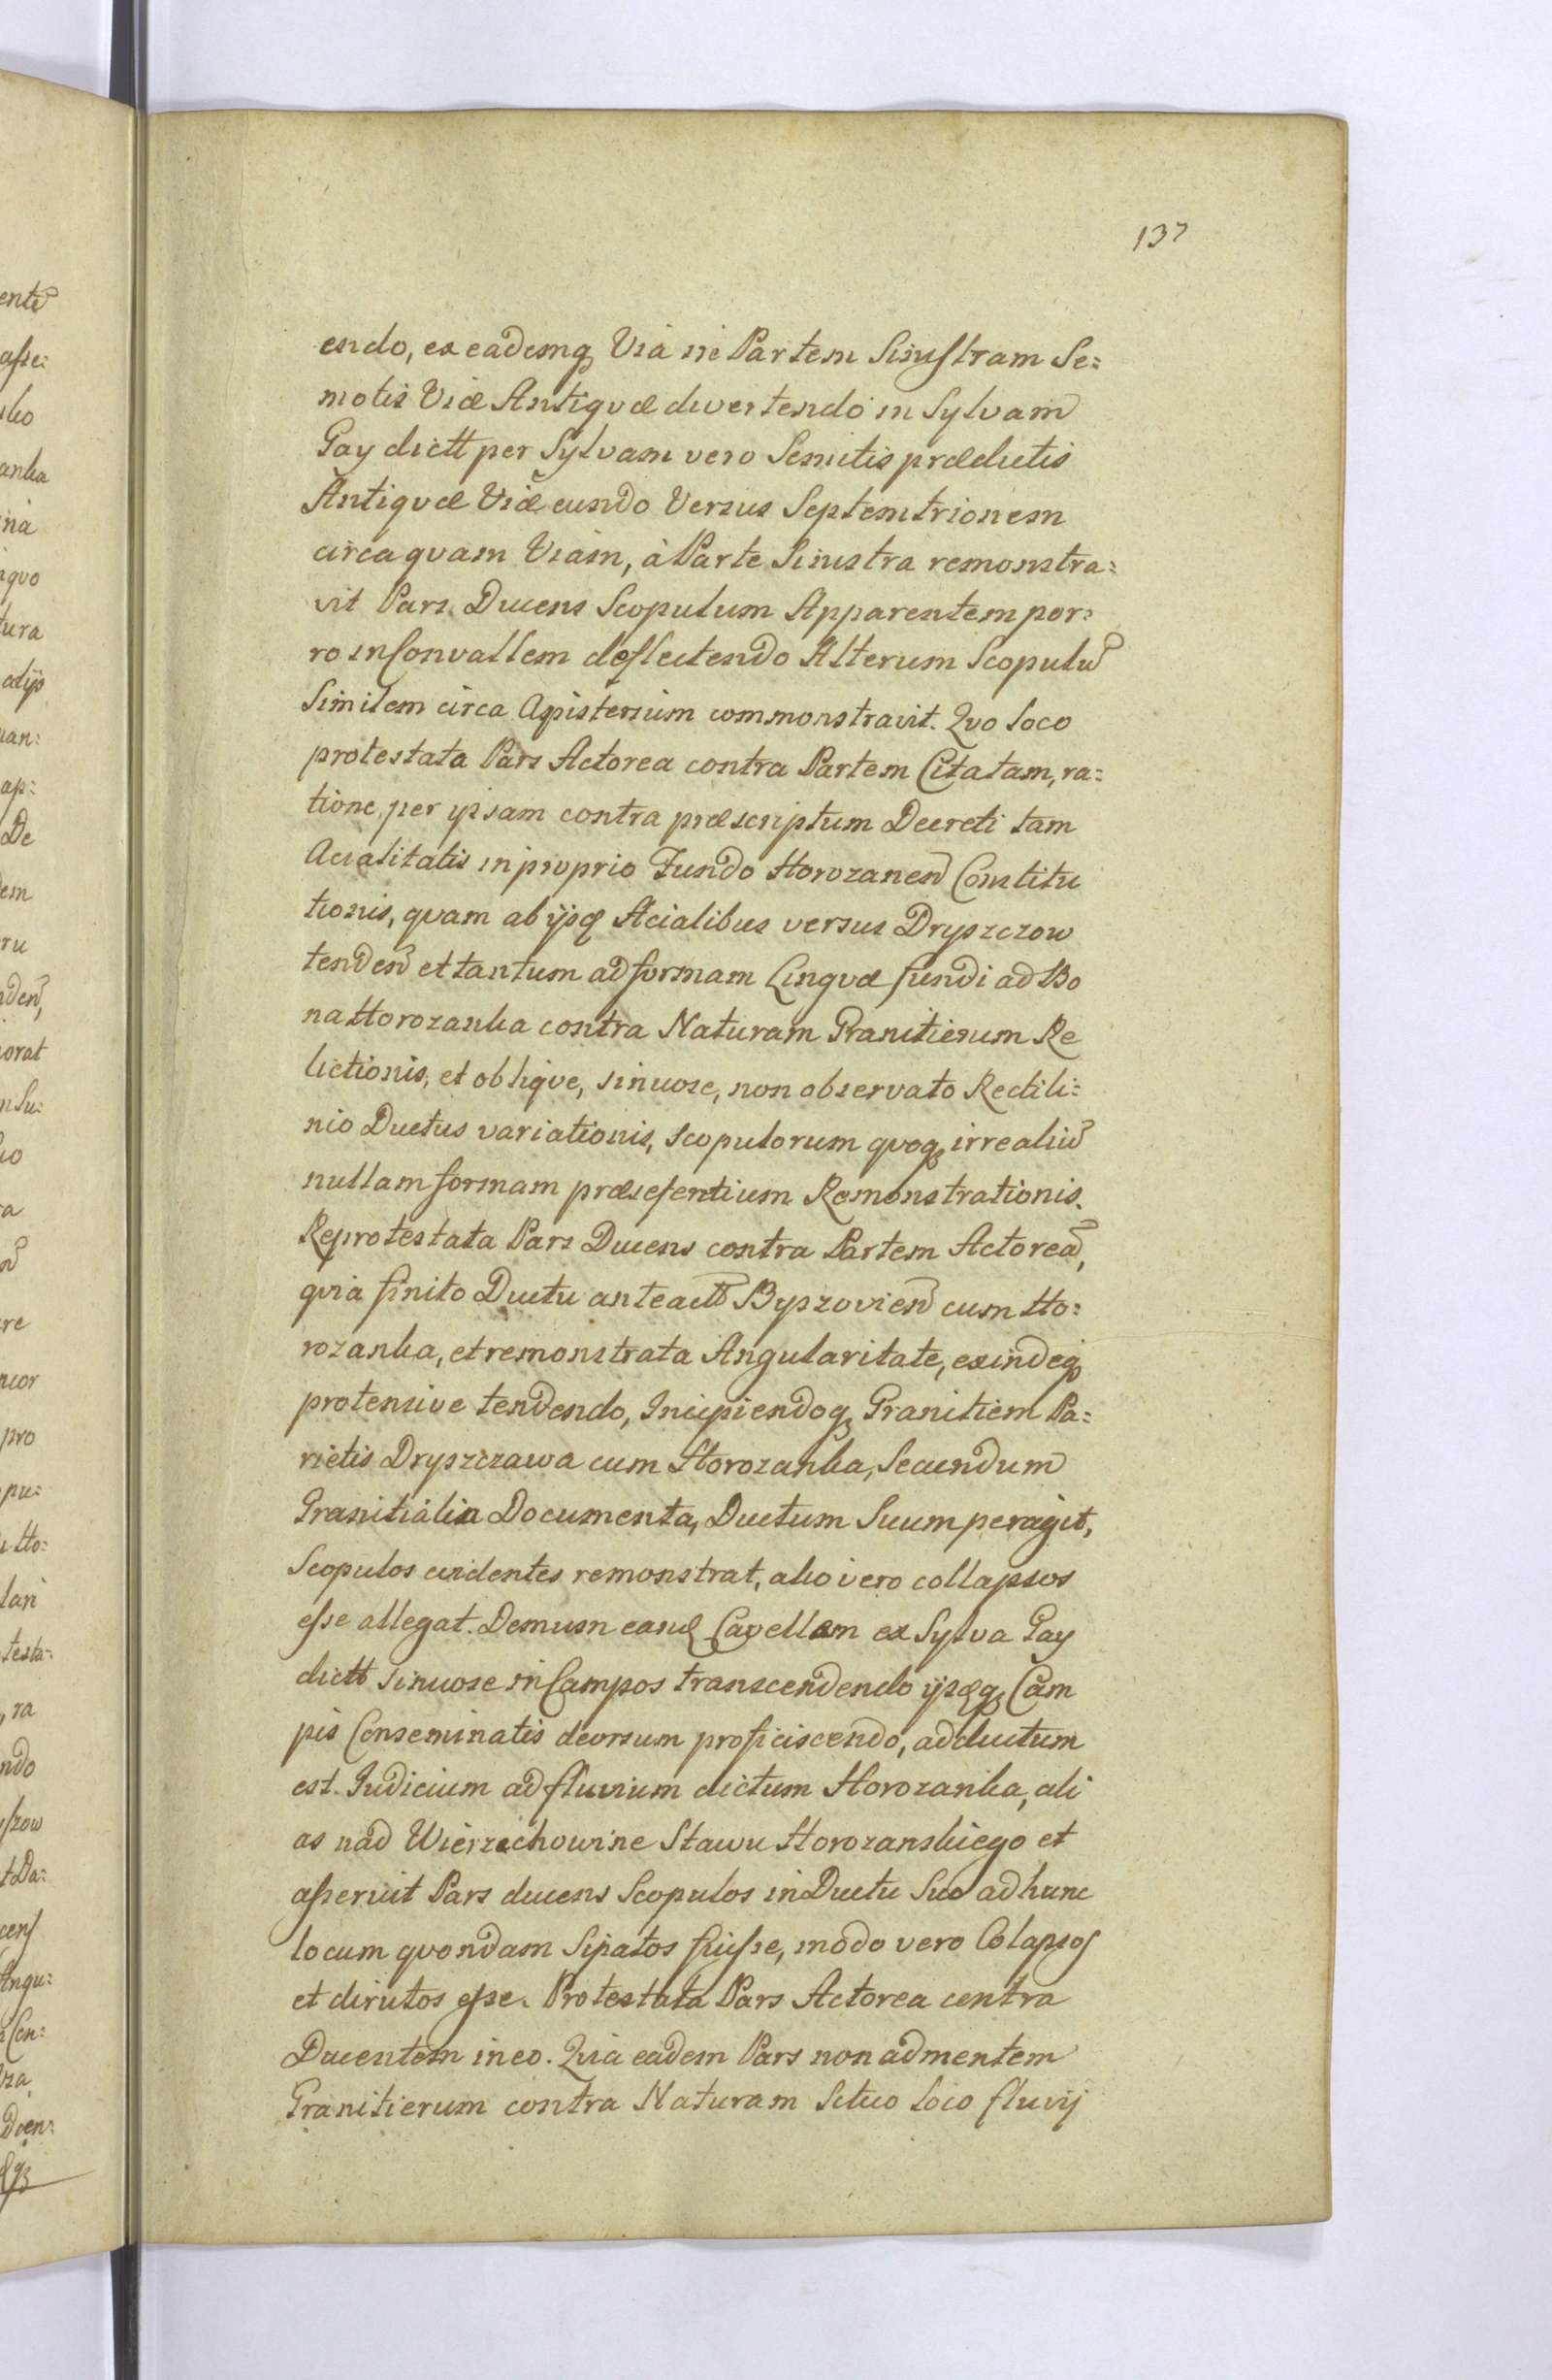 137
endo, ex eademq Via in Partem Sinistram Se=
motis Viæ Antiqvæ divertendo in Sylvam
Gay dictt per Sylvam vero Semitis prædictis
Antiqvæ Viæ eundo Versus Septemtrionem
circa qvam Viam, à Parte Sinistra remonstra=
vit Pars Ducens Scopulum Apparentem por=
ro in Convallem deflectendo Alterum Scopulu
Similem circa Apisterium commonstravit. Qvo loco
protestata Pars Actorea contra Partem Citatam, ra=
tione per ipsam contra præscriptum Decreti tam
Acialitatis in proprio Fundo Horozanen Constitu
tionis, qvam ab ijsq Acialibus versus Dryszczow
tenden et tantum ad formam Lingvæ fundi ad Bo
na Horozanka contra Naturam Granitierum Re
lictionis, et obliqve, sinuose, non observato Rectili=
nio Ductus variationis, scopulorum qvoq irrealiu
nullam formam præseferentium Remonstrationis.
Reprotestata Pars Ducens contra Partem Actorea,
qvia finito Ductu anteactt Byszovien cum Ho=
rozanka, et remonstrata Angularitate, exindeq
protensive tendendo, Incipiendoq Granitiem Pa=
rietis Dryszczowa cum Horozanka, Secundum
Granitialia Documenta, Ductum Suum peragit,
Scopulos evidentes remonstrat, alio vero collapsos
esse allegat. Demum eand Cavellam ex Sylva Gay
dictt sinuose in Campos transcendendo ijsq Cam
pis Conseminatis deorsum proficiscendo, adductum
est. Judicium ad fluvium dictum Horozanka, ali
as nad Wierzchowine Stawu Horozanskiego et
asseruit Pars ducens Scopulos in Ductu Suo ad hunc
locum qvondam Sipatos fuisse, modo vero Colapsos
et dirutos esse. Protestata Pars Actorea contra
Ducentem in eo. Qvia eadem Pars non ad mentem
Granitierum contra Naturam Situo loco fluvij